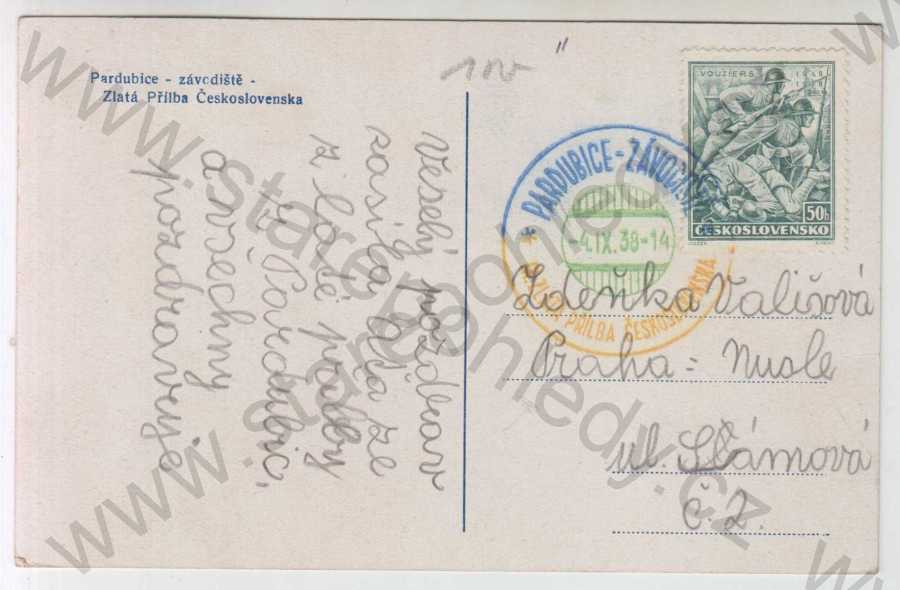 Pardubice - závodiště -
Zlatá Přilba Československa
Veselý pozdrav
zasílá Olja ze
z laté přilby
z Pardubic,
a všechny
pozdravuje
VOUZIERS 1918
50h
ČESKOSLOVENSKO
* PARDUBICE-ZÁVODIŠTĚ
-4.IX.38-14
PŘILBA ČESKOSLOVENSKA
Zdeňka Vališová
Praha = Nusle
ul. Slámová
č. 2.
www.starepohledy.cz